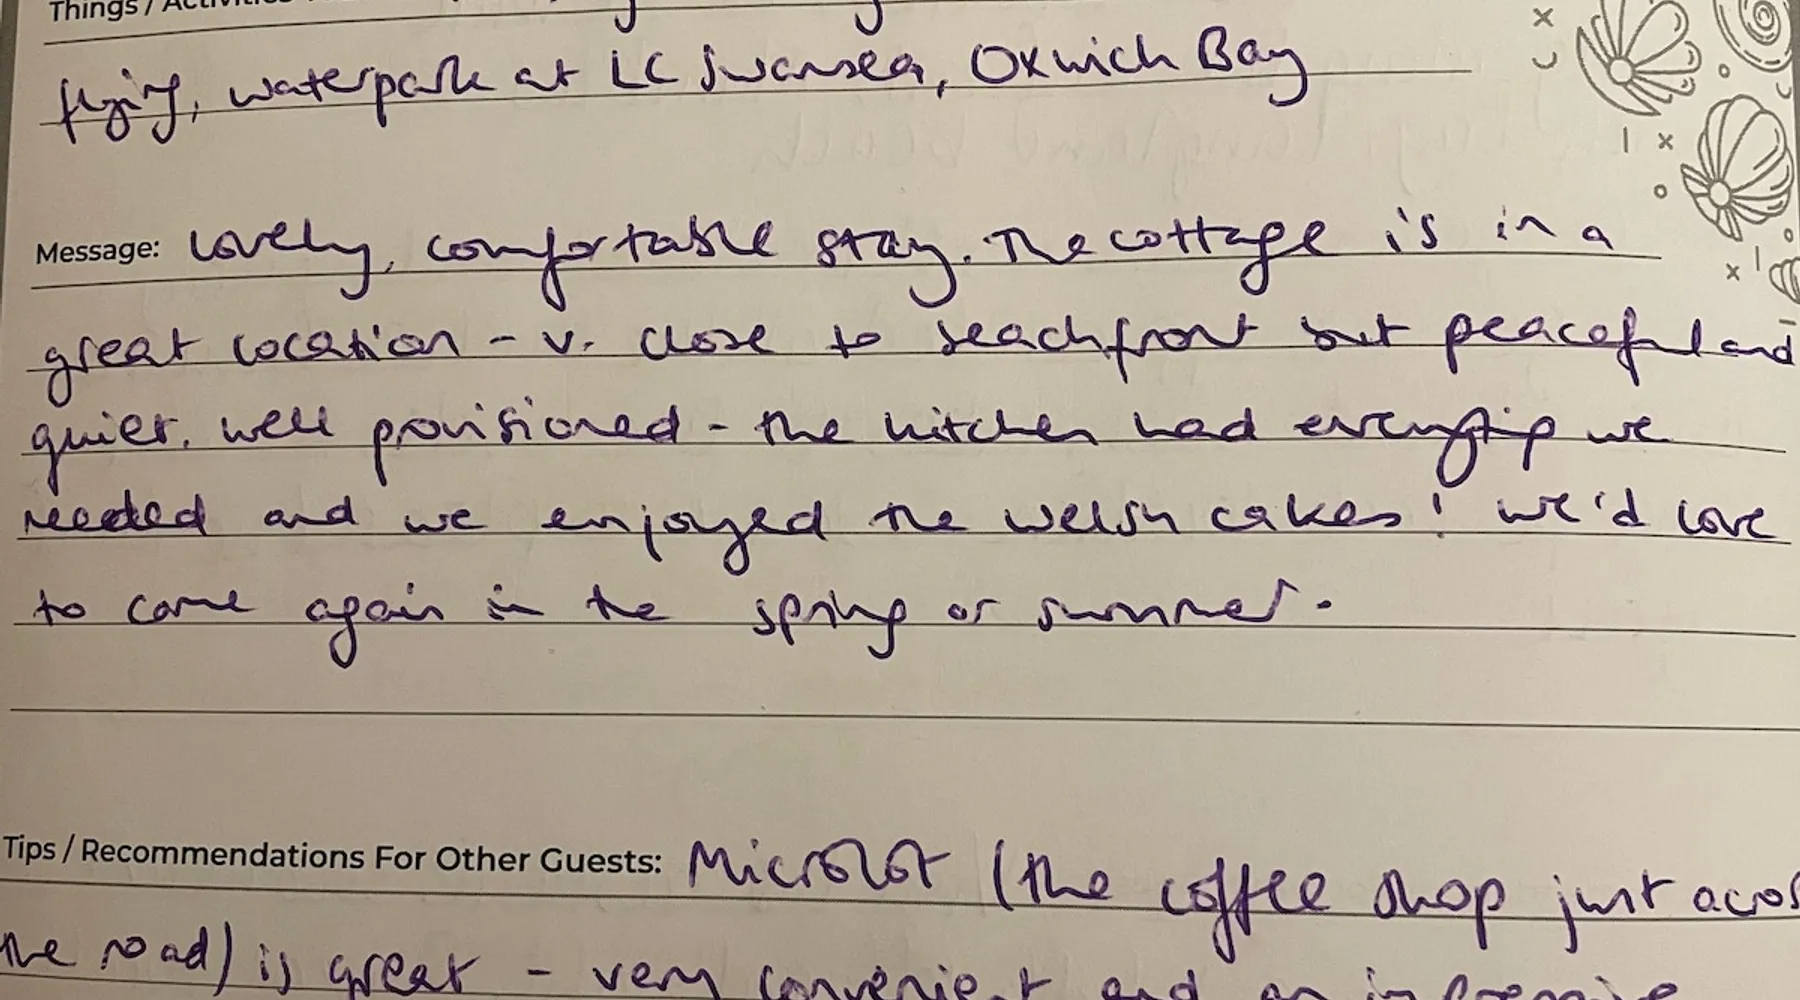 Things / Activities
flying, waterpark at LC Swansea, Oxwich Bay
Message: Lovely, comfortable stay. The cottage is in a
great location - v. close to beachfront but peaceful and
quiet. Well provisioned - the kitchen had everything we
needed and we enjoyed the welsh cakes! We'd love
to come again in the spring or summer.
Tips / Recommendations For Other Guests: Microlot (the coffee shop just across
the road) is great - very convenient and an impressive